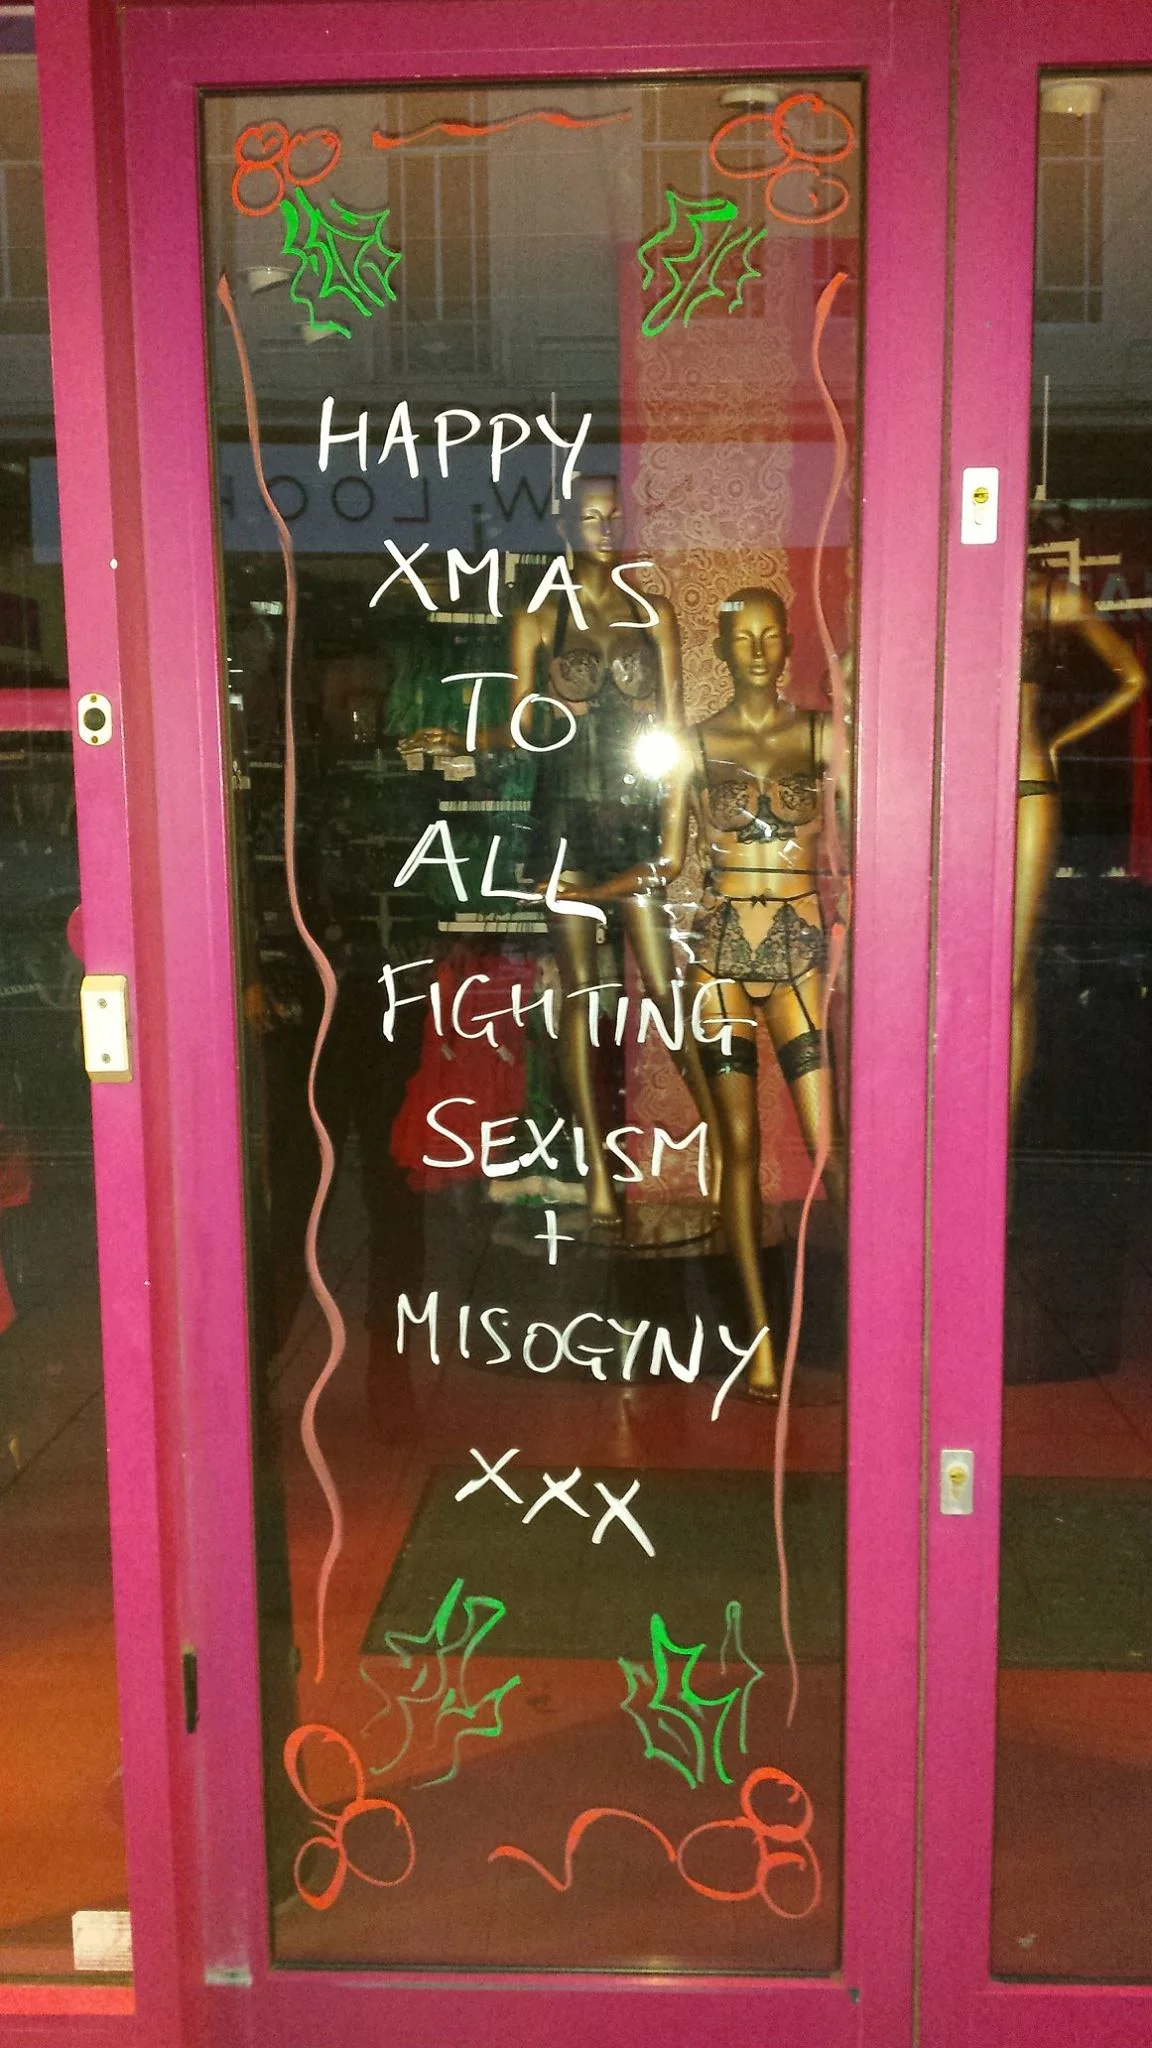 HAPPY
XMAS
TO
ALL
FIGHTING
SEXISM
+
MISOGYNY
XXX